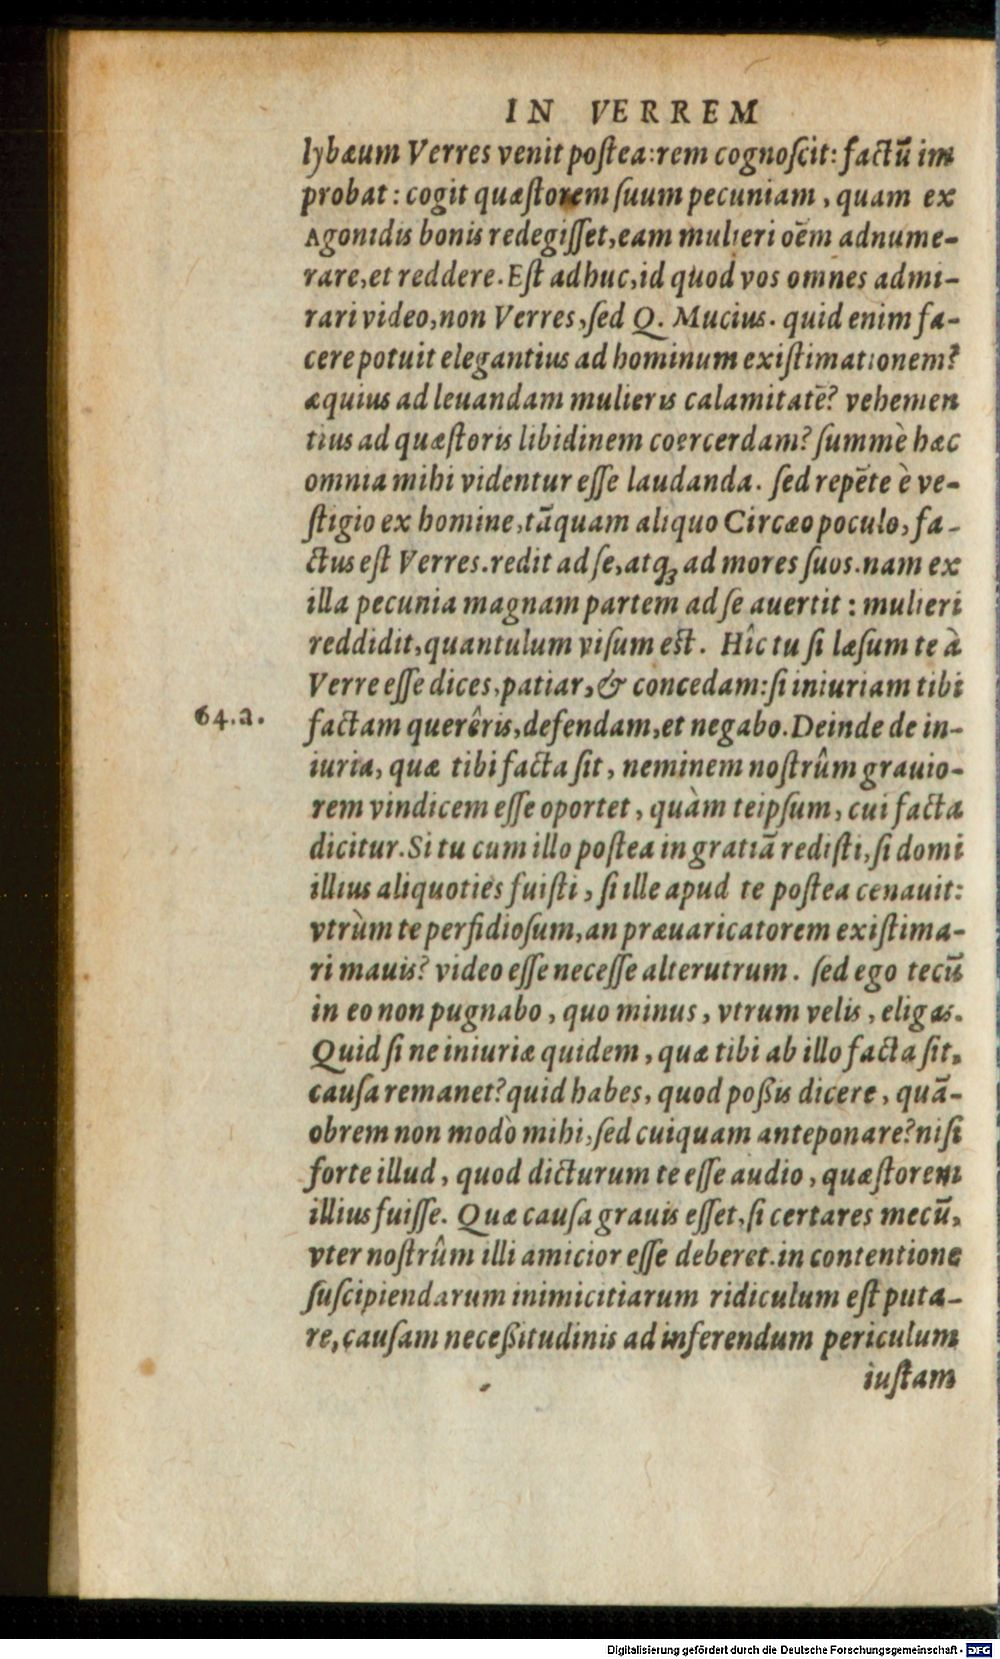 IN VERREM
lybæum Verres venit poſtea: rem cognoſcit: factū im
probat: cogit quæſtorem ſuum pecuniam, quam ex
Agonidis bonis redegiſſet, eam mulieri oēm adnume-
rare, et reddere. Eſt adhuc, id quod vos omnes admi-
rari video, non Verres, ſed Q. Mucius. quid enim fa-
cere potuit elegantius ad hominum exiſtimationem?
æquius ad leuandam mulieris calamitatē? vehemen
tius ad quæſtoris libidinem coercerdam? ſummè hæc
omnia mihi videntur eſſe laudanda. ſed repēte è ve-
ſtigio ex homine, tāquam aliquo Circæo poculo, fa-
ctus eſt Verres. redit ad ſe, atq; ad mores ſuos. nam ex
illa pecunia magnam partem ad ſe auertit: mulieri
reddidit, quantulum viſum eſt. Hîc tu ſi læſum te à
Verre eſſe dices, patiar, & concedam: ſi iniuriam tibi
64.a. factam querêris, defendam, et negabo. Deinde de in-
iuria, quæ tibi facta ſit, neminem noſtrûm grauio-
rem vindicem eſſe oportet, quàm teipſum, cui facta
dicitur. Si tu cum illo poſtea in gratiā rediſti, ſi domi
illius aliquoties fuiſti, ſi ille apud te poſtea cenauit:
vtrùm te perfidioſum, an præuaricatorem exiſtima-
ri mauis? video eſſe neceſſe alterutrum. ſed ego tecū
in eo non pugnabo, quo minus, vtrum velis, eligas.
Quid ſi ne iniuriæ quidem, quæ tibi ab illo facta ſit,
cauſa remanet? quid habes, quod poßis dicere, quā-
obrem non modò mihi, ſed cuiquam anteponare? niſi
forte illud, quod dicturum te eſſe audio, quæſtorem
illius fuiſſe. Quæ cauſa grauis eſſet, ſi certares mecū,
vter noſtrûm illi amicior eſſe deberet. in contentione
ſuſcipiendarum inimicitiarum ridiculum eſt puta-
re, cauſam neceßitudinis ad inferendum periculum
iuſtam
Digitalisierung gefördert durch die Deutsche Forschungsgemeinschaft - DFG